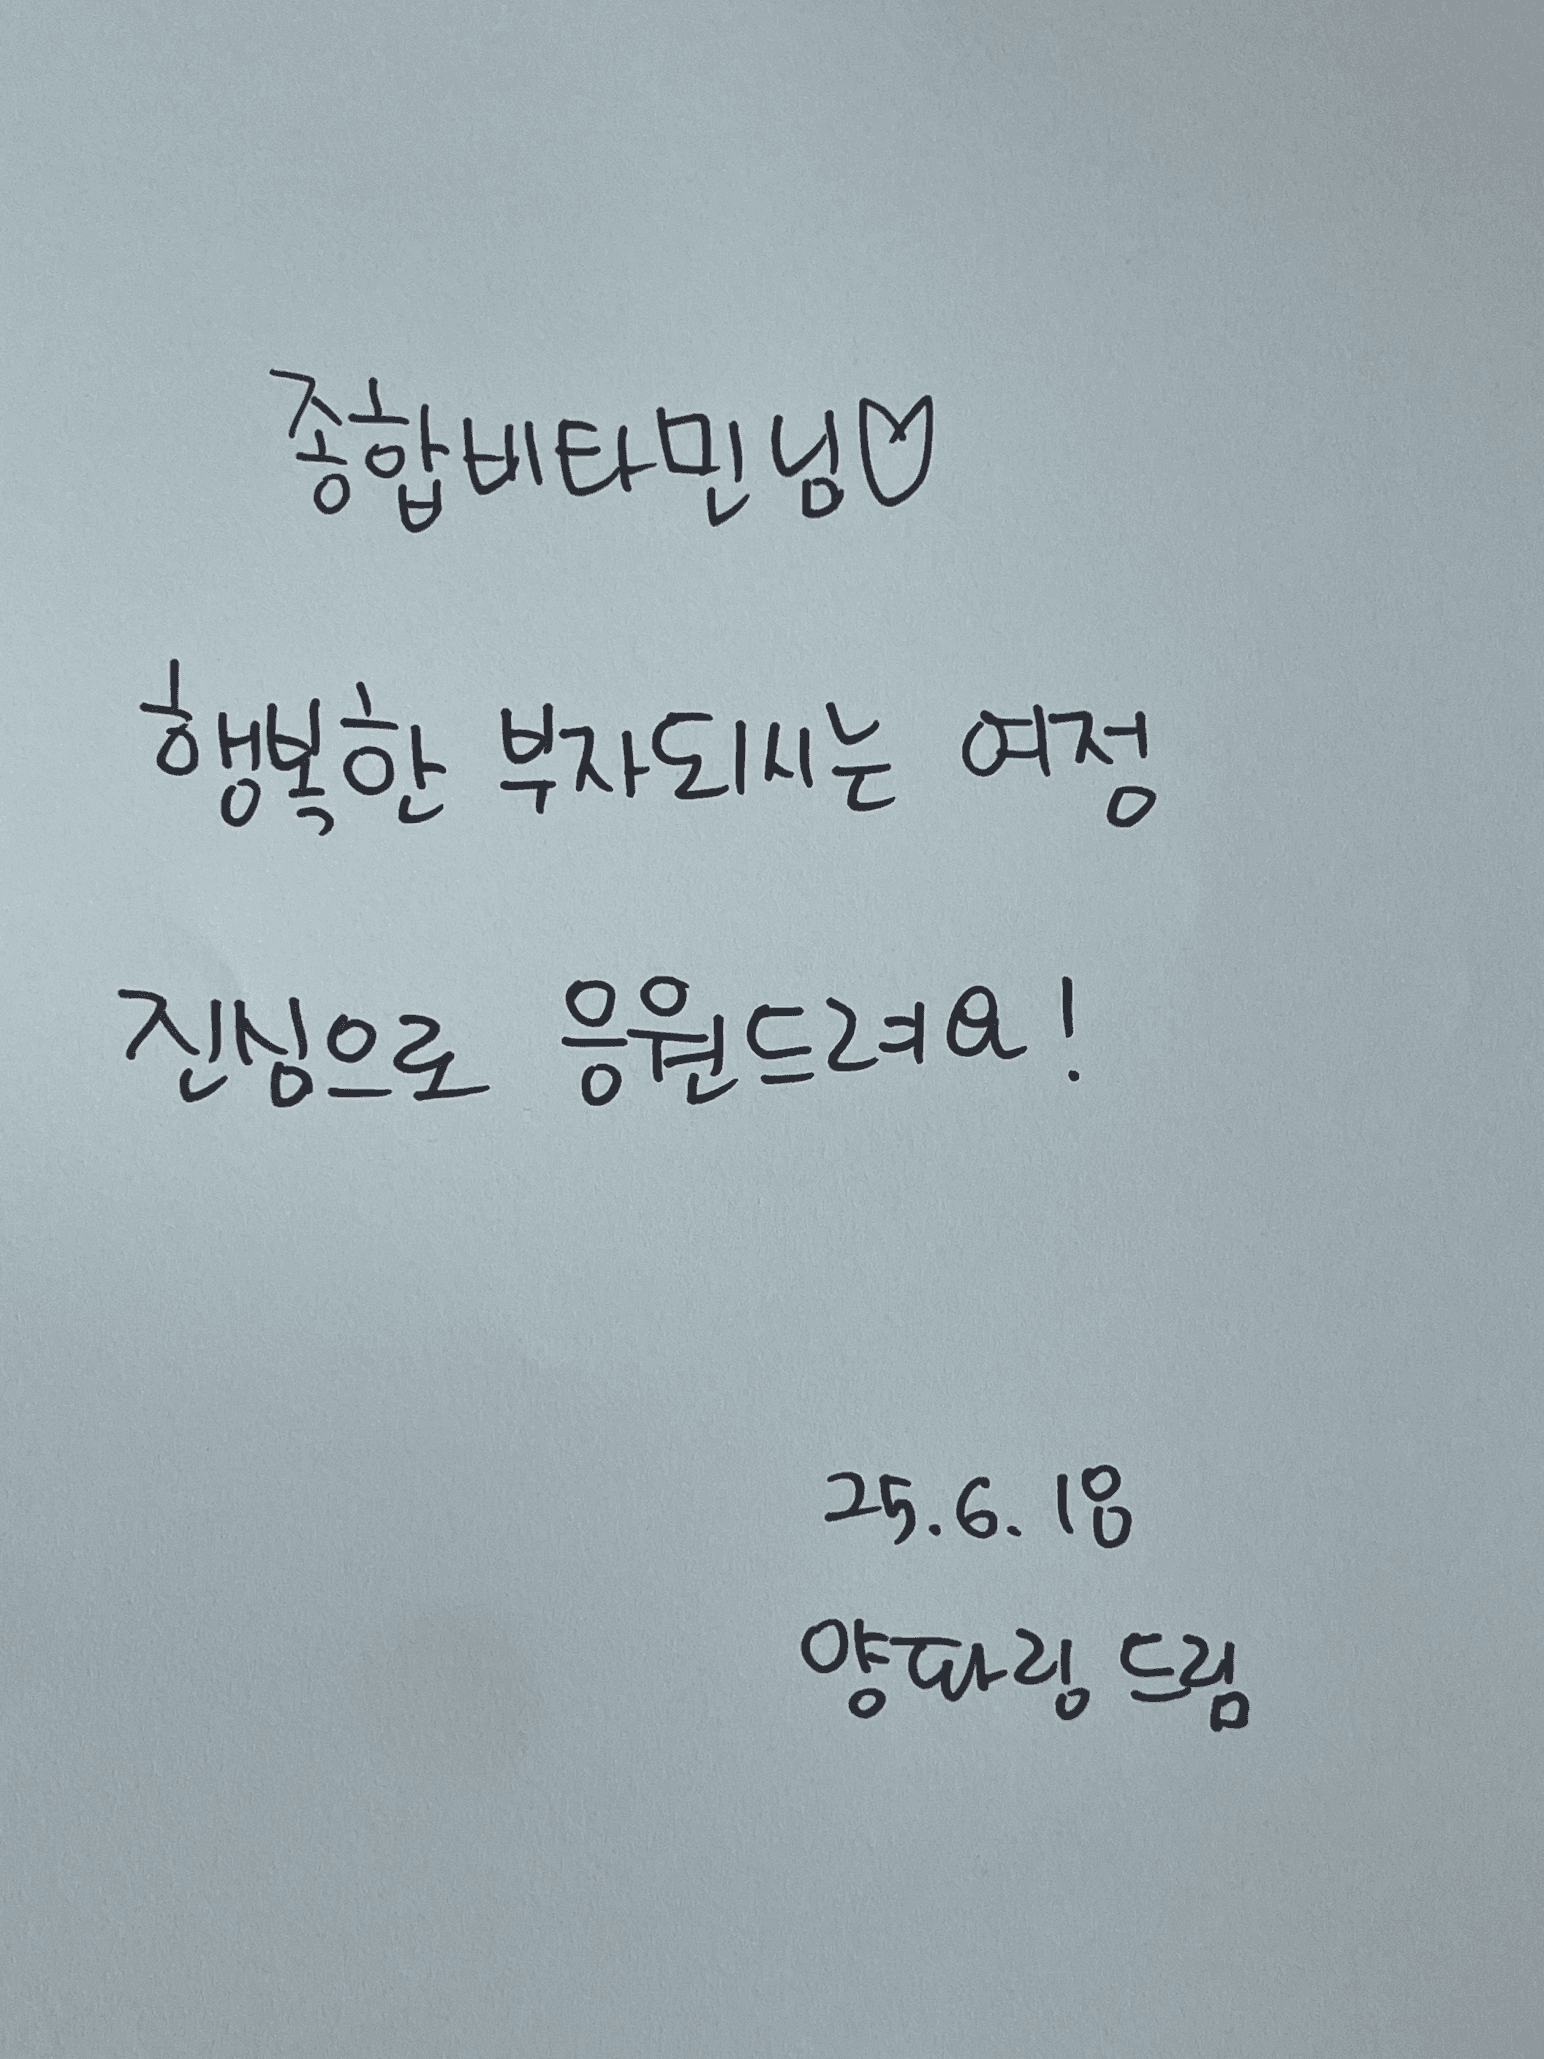 종합비타민님♡
행복한 부자되시는 여정
진심으로 응원드려요!
25.6.18
양파링 드림